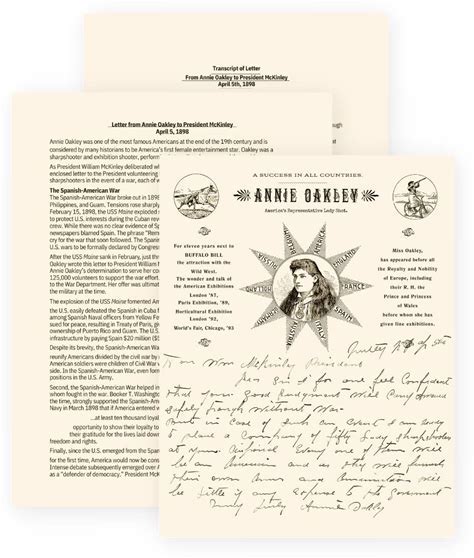 Transcript of Letter
From Annie Oakley to President McKinley
April 5th, 1898
Letter from Annie Oakley to President McKinley
April 5, 1898
Annie Oakley was one of the most famous Americans at the end of the 19th century and is
considered by many historians to be America's first female entertainment star. Oakley was a
sharpshooter and exhibition shooter, perform
As President William McKinley deliberated wh
enclosed letter to the President volunteering
sharpshooters in the event of a war, each of w
The Spanish-American War
The Spanish-American War broke out in 189
Philippines, and Guam. Tensions rose sharply
February 15, 1898, the USS Maine exploded
to protect U.S. interests during the Cuban
crew. While there was no clear evidence of S
newspapers blamed Spain. The phrase "Rem
cry for the war that soon followed. The Spani
U.S. wars to be formally declared by Congress
After the USS Maine sank in February, just the
Oakley wrote this letter to President William
Annie Oakley's determination to serve her co
125,000 volunteers for the war effort, 32,000
to the War Department. Her offer was ultimat
the military at the time.
The explosion of the USS Maine fomented Am
the U.S. easily defeated the Spanish in Cuba
among Spanish Naval officers from Yellow Fe
sued for peace, resulting in Treaty of Paris, g
ownership of Puerto Rico and Guam. The U.S
infrastructure by paying Spain $20 million ($
Despite its brevity, the Spanish-American W
reunify Americans divided by the civil war by
American soldiers were children of Civil War
positions in the U.S. Army.
Second, the Spanish-American War helped in
whom fought in the war. Booker T. Washingto
the time, strongly supported the Spanish-Am
Navy in March 1898 that if America entered
...at least ten thousand loyal
opportunity to show their loyalty to
their gratitude for the lives laid down
freedom and rights.
Finally, since the U.S. emerged from the Span
for the first time, Americans would now be co
Intense debate subsequently emerged over A
as a "defender of democracy," President McK
A SUCCESS IN ALL COUNTRIES.
ANNIE OAKLEY
America's Representative Lady Shot.
For eleven years next to
BUFFALO BILL
the attraction with the
Wild West.
The wonder and talk of
the American Exhibitions
London '87,
Paris Exhibition, '89,
Horticulture London,
'92,
World's Fair, Chicago, '93
FRANCE
Miss Oakley,
has appeared before all
the Royalty and Nobility
of Europe, including
their R. H. the
Prince and Princess
of Wales
before whom she has
given five exhibitions.
Hon Wm McKinley President
Dear Sir I for one feel Confident
that your good Judgment will Carry America
safely through without War
But in case of such an Event I am ready
to place a Company of fifty Lady Sharpshooters
at your disposal Every one of them will
be an American and as they will furnish
their own Arms and Ammunition will
be little if any expense to the Government
Very Truly Annie Oakley